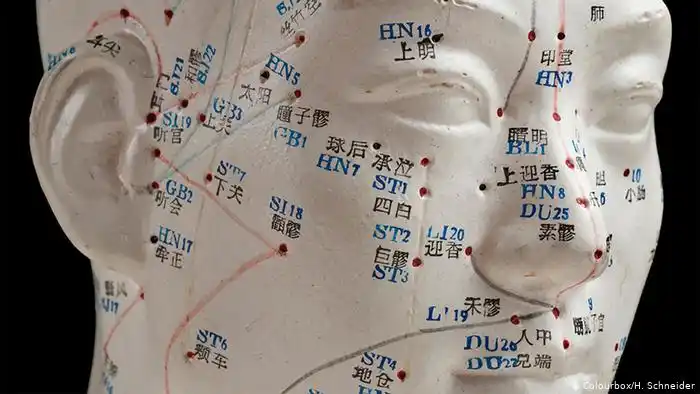 HN16
上明
丝竹空
肺
印堂
HN3
HN5
太阳
和髎
BJ22
BJ21
GB3
上关
瞳子髎
GB1
SI19
听宫
球后
HN7
承泣
ST1
睛明
BL1
上迎香
HN8
DU25
素髎
10
小肠
胆
ST7
下关
GB2
听会
SI18
颧髎
四白
ST2
巨髎
ST3
LI20
迎香
HN17
牵正
禾髎
L'19
人中
DU26
兑端
DU27
ST6
颊车
ST4
地仓
Colourbox/H. Schneider